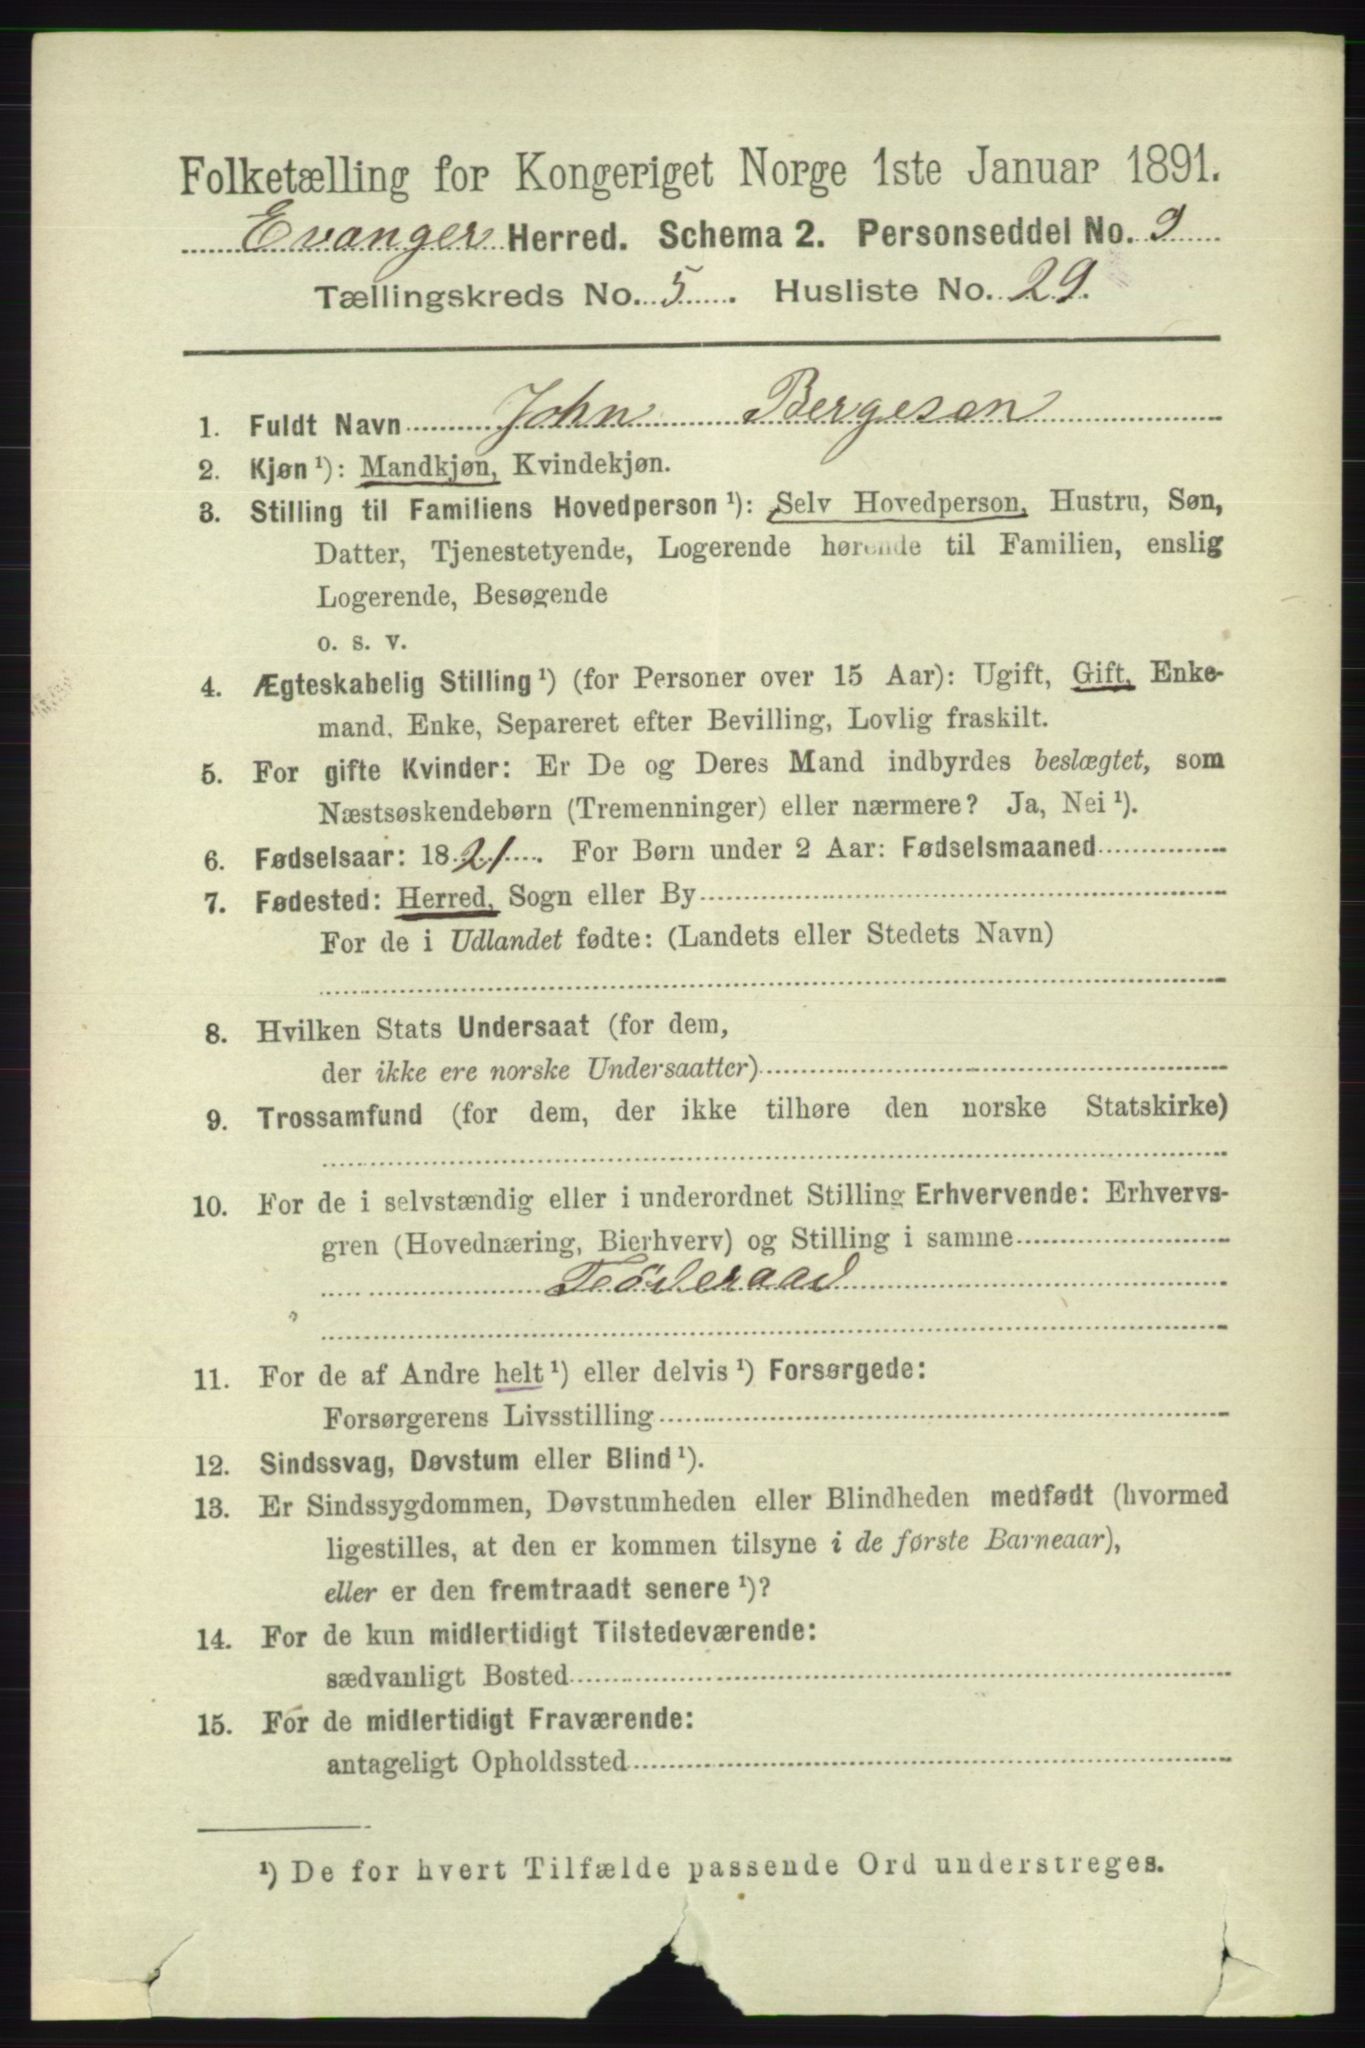 Folketælling for Kongeriget Norge 1ste Januar 1891.
Evanger Herred. Schema 2. Personseddel No. 9
Tællingskreds No. 5. Husliste No. 29.
1. Fuldt Navn John Bergesen
2. Kjøn ¹): Mandkjøn, Kvindekjøn.
3. Stilling til Familiens Hovedperson ¹): Selv Hovedperson, Hustru, Søn,
Datter, Tjenestetyende, Logerende hørende til Familien, enslig
Logerende, Besøgende
o. s. v.
4. Ægteskabelig Stilling ¹) (for Personer over 15 Aar): Ugift, Gift, Enke-
mand, Enke, Separeret efter Bevilling, Lovlig fraskilt.
5. For gifte Kvinder: Er De og Deres Mand indbyrdes beslægtet, som
Næstsøskendebørn (Tremenninger) eller nærmere? Ja, Nei ¹).
6. Fødselsaar: 1821. For Børn under 2 Aar: Fødselsmaaned
7. Fødested: Herred, Sogn eller By
For de i Udlandet fødte: (Landets eller Stedets Navn)
8. Hvilken Stats Undersaat (for dem,
der ikke ere norske Undersaatter)
9. Trossamfund (for dem, der ikke tilhøre den norske Statskirke)
10. For de i selvstændig eller i underordnet Stilling Erhvervende: Erhvervs-
gren (Hovednæring, Bierhverv) og Stilling i samme
Föderaad
11. For de af Andre helt ¹) eller delvis ¹) Forsørgede:
Forsørgerens Livsstilling
12. Sindssvag, Døvstum eller Blind ¹).
13. Er Sindssygdommen, Døvstumheden eller Blindheden medfødt (hvormed
ligestilles, at den er kommen tilsyne i de første Barneaar),
eller er den fremtraadt senere ¹)?
14. For de kun midlertidigt Tilstedeværende:
sædvanligt Bosted
15. For de midlertidigt Fraværende:
antageligt Opholdssted
¹) De for hvert Tilfælde passende Ord understreges.